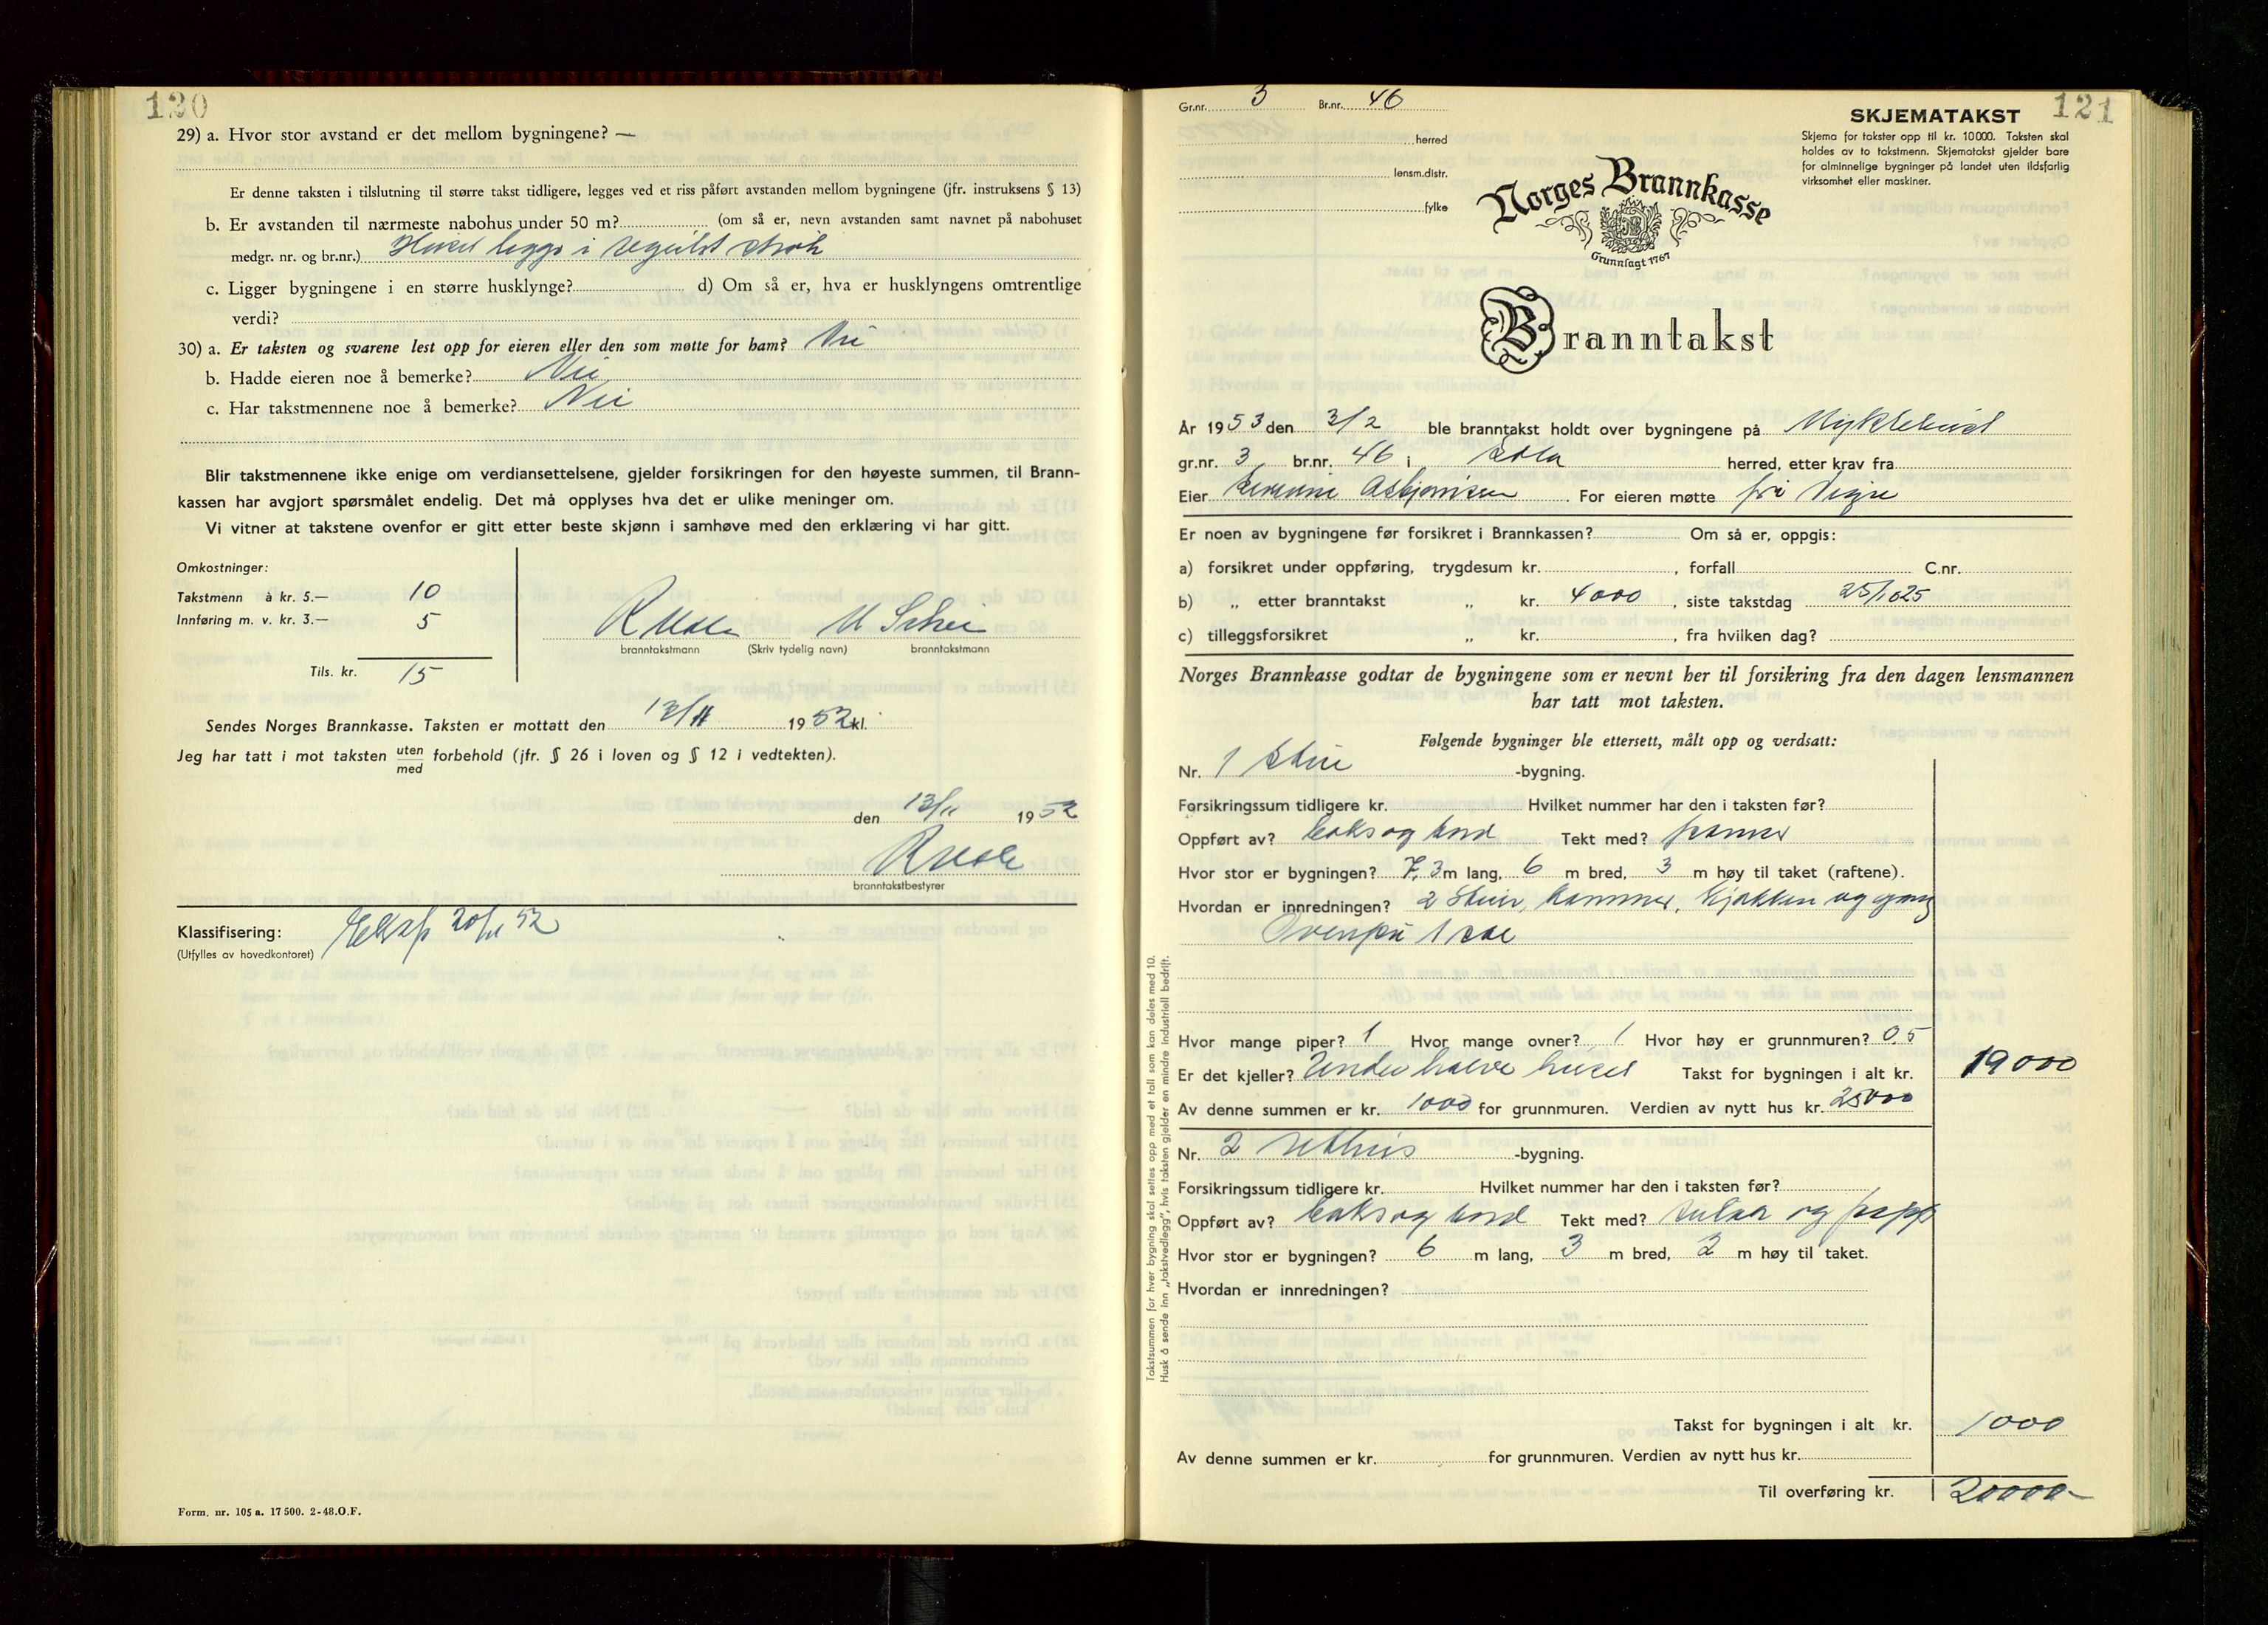 120
29) a. Hvor stor avstand er det mellom bygningene? —
Er denne taksten i tilslutning til større takst tidligere, legges ved et riss påført avstanden mellom bygningene (jfr. instruksens § 13)
b. Er avstanden til nærmeste nabohus under 50 m? (om så er, nevn avstanden samt navnet på nabohuset
medgr. nr. og br.nr.) Huset liggs i regulet strøk
c. Ligger bygningene i en større husklynge? d) Om så er, hva er husklyngens omtrentlige
verdi?
30) a. Er taksten og svarene lest opp for eieren eller den som møtte for ham? Nei
b. Hadde eieren noe å bemerke? Nei
c. Har takstmennene noe å bemerke? Nei
Blir takstmennene ikke enige om verdiansettelsene, gjelder forsikringen for den høyeste summen, til Brann-
kassen har avgjort spørsmålet endelig. Det må opplyses hva det er ulike meninger om.
Vi vitner at takstene ovenfor er gitt etter beste skjønn i samhøve med den erklæring vi har gitt.
Omkostninger:
Takstmenn à kr. 5.— 10
Innføring m. v. kr. 3.— 5
Tils. kr. 15
branntakstmann (Skriv tydelig navn) branntakstmann
Sendes Norges Brannkasse. Taksten er mottatt den 13/11 1952 kl.
Jeg har tatt i mot taksten uten/med forbehold (jfr. § 26 i loven og § 12 i vedtekten).
den 13/11 1952
branntakstbestyrer
Klassifisering: Eksp 20/11 52
(Utfylles av hovedkontoret)
Form. nr. 105 a. 17 500. 2-48.O.F.
121
Gr.nr. 3 Br.nr. 46
herred
lensm.distr.
fylke
SKJEMATAKST
Skjema for takster opp til kr. 10000. Taksten skal
holdes av to takstmenn. Skjematakst gjelder bare
for alminnelige bygninger på landet uten ildsfarlig
virksomhet eller maskiner.
Norges Brannkasse
Grunnlagt 1767
Branntakst
År 1953 den 3/2 ble branntakst holdt over bygningene på Myklebust
gr.nr. 3 br.nr. 46 i Sola herred, etter krav fra
Eier Asbjørnsen For eieren møtte
Er noen av bygningene før forsikret i Brannkassen? Om så er, oppgis:
a) forsikret under oppføring, trygdesum kr. , forfall C.nr.
b) „ etter branntakst „ kr. 4000 , siste takstdag 25/1 625
c) tilleggsforsikret „ kr. , fra hvilken dag?
Norges Brannkasse godtar de bygningene som er nevnt her til forsikring fra den dagen lensmannen
har tatt mot taksten.
Følgende bygninger ble ettersett, målt opp og verdsatt:
Nr. 1 Stue -bygning.
Forsikringssum tidligere kr. Hvilket nummer har den i taksten før?
Oppført av? baks og bord Tekt med? panner
Hvor stor er bygningen? 7,3 m lang, 6 m bred, 3 m høy til taket (raftene).
Hvordan er innredningen? 2 Stuer, kammer, kjøkken og gang
Ovenpå 1 sal
Hvor mange piper? 1 Hvor mange ovner? 1 Hvor høy er grunnmuren? 0.5
Er det kjeller? Under halve huset Takst for bygningen i alt kr. 19000
Av denne summen er kr. 1000 for grunnmuren. Verdien av nytt hus kr. 25000
Nr. 2 uthus -bygning.
Forsikringssum tidligere kr. Hvilket nummer har den i taksten før?
Oppført av? baks og bord Tekt med? sutak og papp
Hvor stor er bygningen? 6 m lang, 3 m bred, 2 m høy til taket.
Hvordan er innredningen?
Takst for bygningen i alt kr. 1000
Av denne summen er kr. for grunnmuren. Verdien av nytt hus kr.
Til overføring kr. 20000-
Takstsummen for hver bygning skal settes opp med et tall som kan deles med 10.
Husk å sende inn „takstvedlegg", hvis taksten gjelder en mindre industriell bedrift.